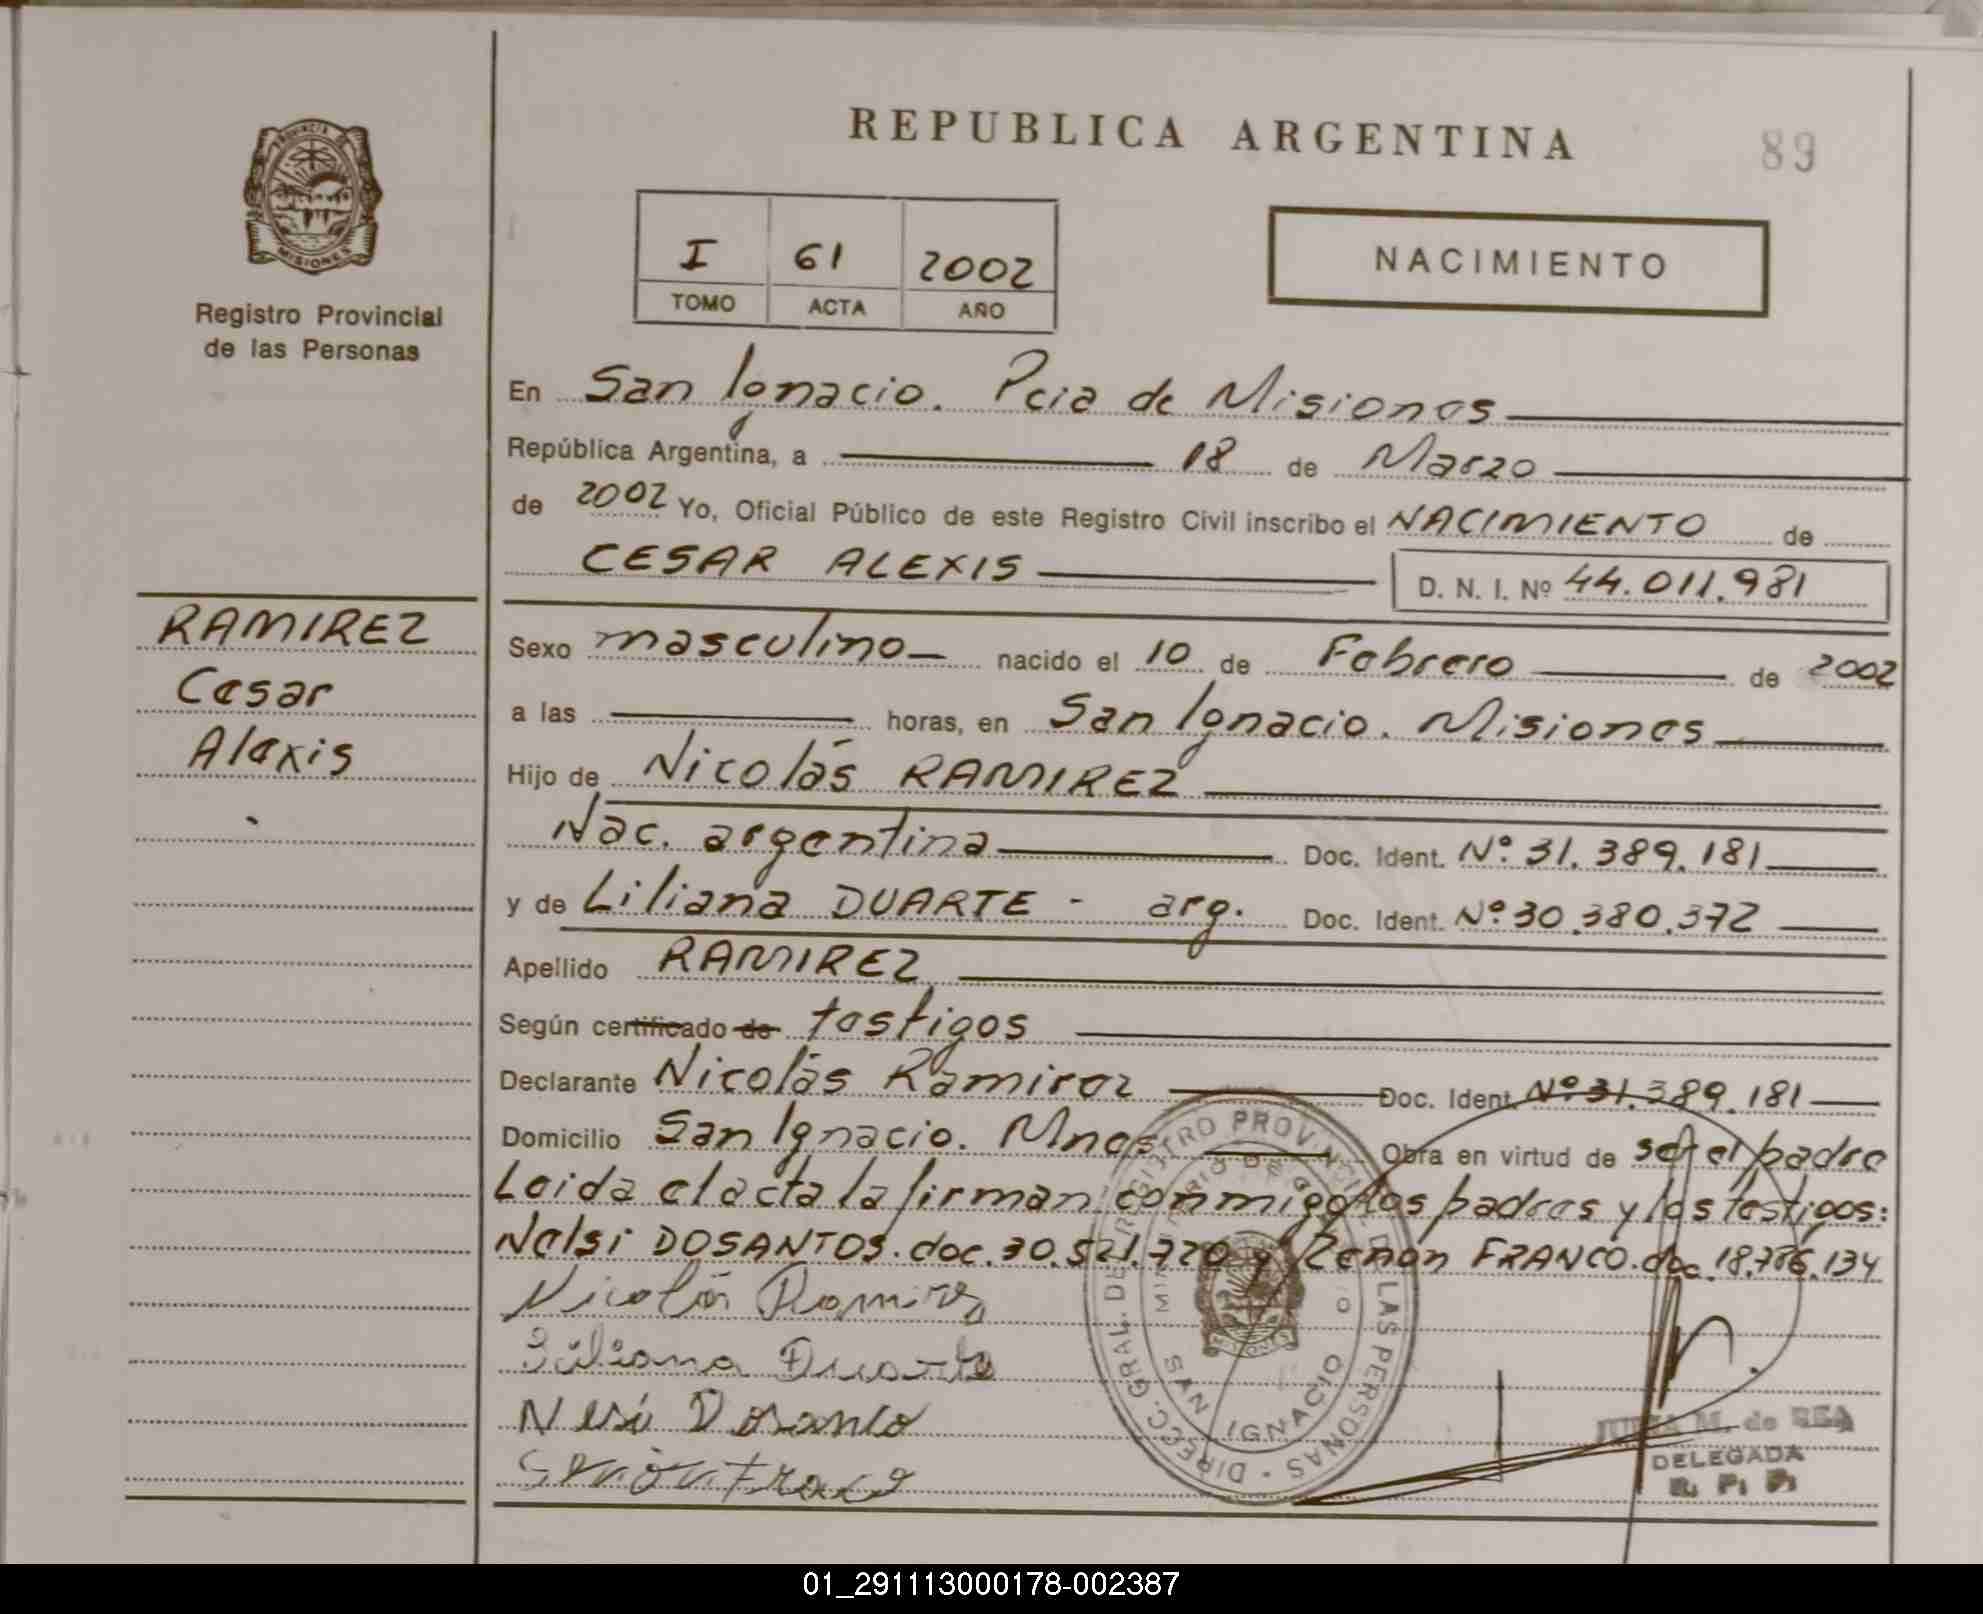 REPUBLICA ARGENTINA
89
PROVINCIA DE
MISIONES
Registro Provincial
de las Personas
I 61 2002
TOMO ACTA AÑO
NACIMIENTO
En San Ignacio. Pcia de Misiones
República Argentina, a 18 de Marzo
de 2002 Yo, Oficial Público de este Registro Civil inscribo el NACIMIENTO de
CESAR ALEXIS D. N. I. Nº 44.011.981
RAMIREZ
Cesar
Alexis
Sexo masculino nacido el 10 de Febrero de 2002
a las horas, en San Ignacio. Misiones
Hijo de Nicolás RAMIREZ
Nac. argentina Doc. Ident. Nº 31.389.181
y de Liliana DUARTE - arg. Doc. Ident. Nº 30.380.372
Apellido RAMIREZ
Según certificado de testigos
Declarante Nicolás Ramirez Doc. Ident. Nº 31.389.181
Domicilio San Ignacio. Mnes Obra en virtud de ser el padre
Leida el acta la firman conmigo los padres y los testigos:
Nelsi DOSANTOS. doc. 30.521.720 y Zenon FRANCO. doc. 18.786.134
Nicolás Ramirez
Liliana Duarte
DIREC. GRAL. DE REGISTRO PROVINCIAL DE LAS PERSONAS
SAN IGNACIO
M. de REA
DELEGADA
R. P. P.
01_291113000178-002387